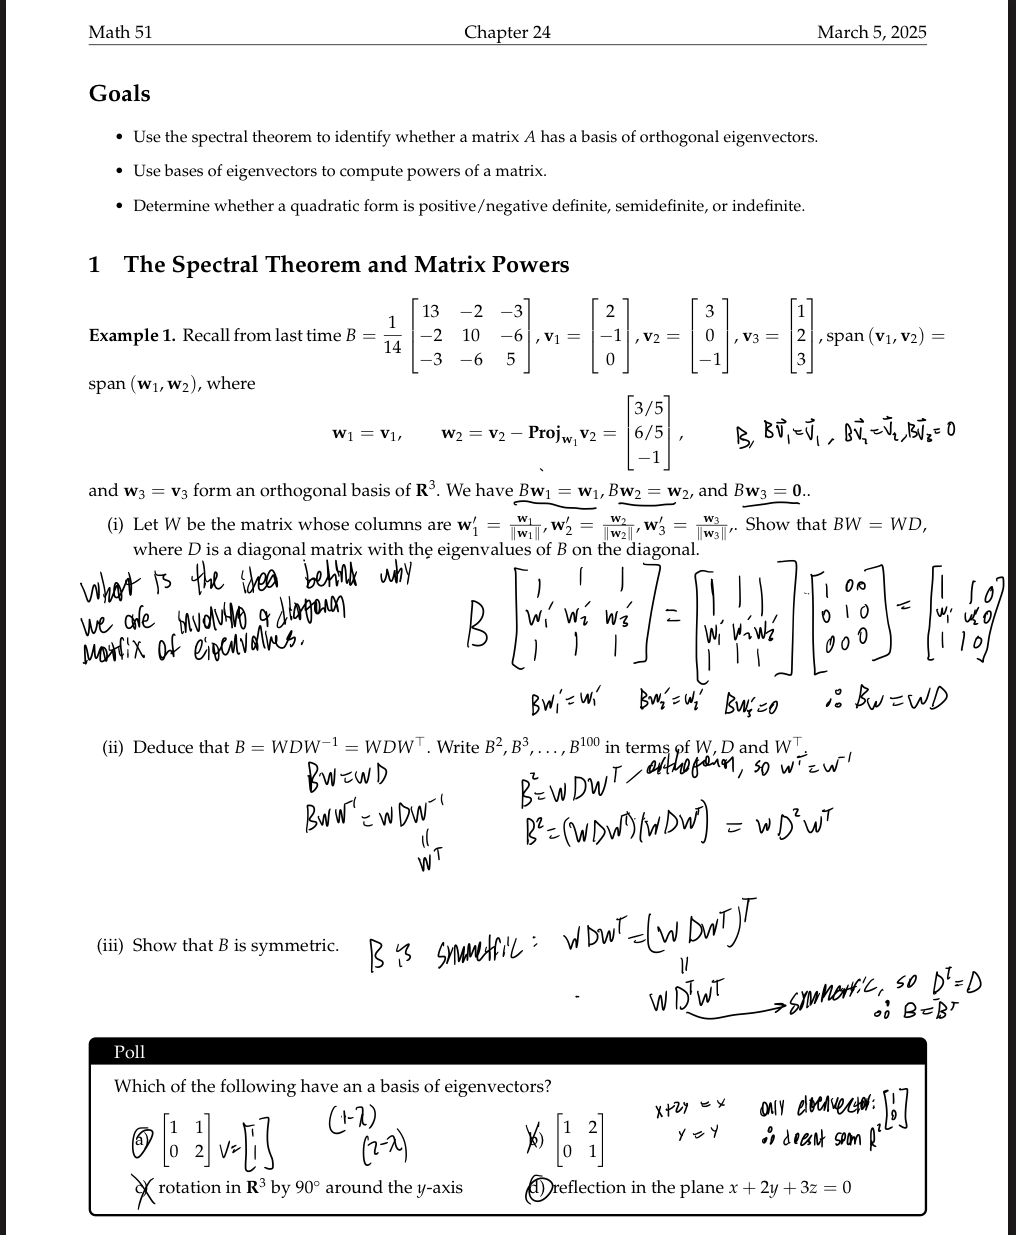 Math 51 Chapter 24 March 5, 2025
Goals
• Use the spectral theorem to identify whether a matrix A has a basis of orthogonal eigenvectors.
• Use bases of eigenvectors to compute powers of a matrix.
• Determine whether a quadratic form is positive/negative definite, semidefinite, or indefinite.
1 The Spectral Theorem and Matrix Powers
Example 1. Recall from last time B = 1/14 [13 −2 −3; −2 10 −6; −3 −6 5], v₁ = [2; −1; 0], v₂ = [3; 0; −1], v₃ = [1; 2; 3], span (v₁, v₂) =
span (w₁, w₂), where
w₁ = v₁, w₂ = v₂ − Proj_w₁ v₂ = [3/5; 6/5; −1],
B, Bv⃗₁=v⃗₁, Bv⃗₂=v⃗₂, Bv⃗₃=0
and w₃ = v₃ form an orthogonal basis of R³. We have Bw₁ = w₁, Bw₂ = w₂, and Bw₃ = 0..
(i) Let W be the matrix whose columns are w′₁ = w₁/‖w₁‖, w′₂ = w₂/‖w₂‖, w′₃ = w₃/‖w₃‖,. Show that BW = WD,
where D is a diagonal matrix with the eigenvalues of B on the diagonal.
What is the idea behind why
we are involving a diagonal
matrix of eigenvalues.
B [w₁′ w₂′ w₃′] = [w₁′ w₂′ w₃′] [1 0 0; 0 1 0; 0 0 0] = [w₁′ w₂′ 0]
Bw₁′=w₁′ Bw₂′=w₂′ Bw₃′=0 ∴ BW=WD
(ii) Deduce that B = WDW⁻¹ = WDW⊤. Write B², B³, . . . , B¹⁰⁰ in terms of W, D and W⊤.
BW=WD
BWW⁻¹=WDW⁻¹
=
Wᵀ
B²=WDWᵀ orthogonal, so Wᵀ=W⁻¹
B²=(WDWᵀ)(WDWᵀ) = WD²Wᵀ
(iii) Show that B is symmetric.
B is symmetric: WDWᵀ=(WDWᵀ)ᵀ
=
WDᵀWᵀ
symmetric, so Dᵀ=D
∴ B=Bᵀ
Poll
Which of the following have an a basis of eigenvectors?
a) [1 1; 0 2] v=[1; 1] (1-λ)
(2-λ)
b) [1 2; 0 1]
x+2y = x
y = y
only eigenvector: [1; 0]
∴ doesnt span R²
c) rotation in R³ by 90° around the y-axis
d) reflection in the plane x + 2y + 3z = 0